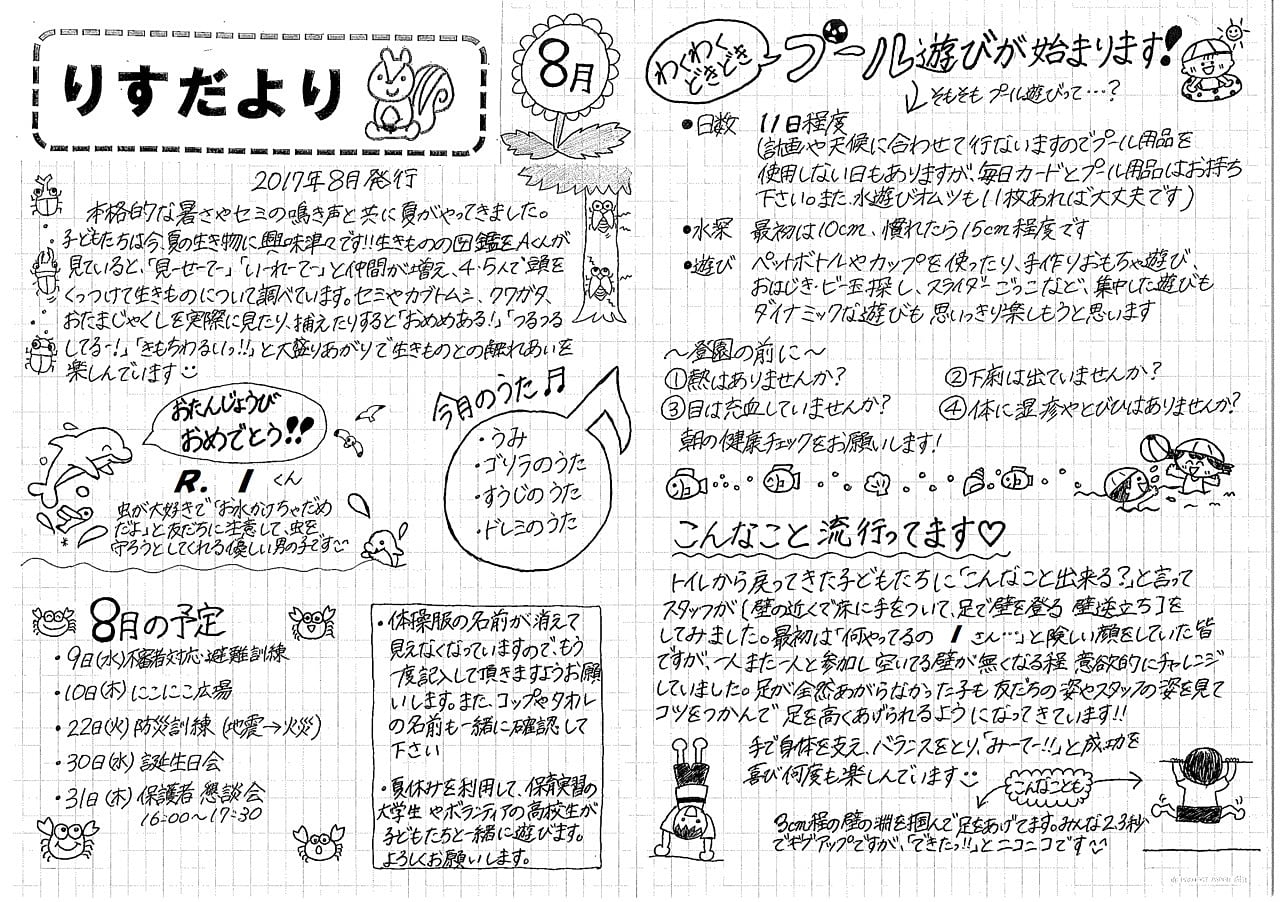 りすだより
8月
2017年8月発行
本格的な暑さやセミの鳴き声と共に夏がやってきました。
子どもたちは今、夏の生き物に興味津々です!!生きものの図鑑をAくんが
見ていると、「見ーせーてー」「いーれーてー」と仲間が増え、4・5人で頭を
くっつけて生きものについて調べています。セミやカブトムシ、クワガタ、
おたまじゃくしを実際に見たり、捕えたりすると「おめめある!」「つるつる
してるー!」「きもちわるいっ!!」と大盛りあがりで生きものとの触れあいを
楽しんでいます
おたんじょうび
おめでとう!!
R. I くん
虫が大好きで「お水かけちゃだめ
だよ」と友だちに注意して、虫を
守ろうとしてくれる優しい男の子です
今月のうた
・うみ
・ゴリラのうた
・すうじのうた
・ドレミのうた
8月の予定
・9日(水)不審者対応・避難訓練
・10日(木)にこにこ広場
・22日(火)防災訓練(地震→火災)
・30日(水)誕生日会
・31日(木)保護者懇談会
16:00〜17:30
・体操服の名前が消えて
見えなくなっていますので、もう
一度記入して頂きますようお願
いします。また、コップやタオル
の名前も一緒に確認して
下さい
・夏休みを利用して、保育実習の
大学生やボランティアの高校生が
子どもたちと一緒に遊びます。
よろしくお願いします。
わくわく
どきどき
プール遊びが始まります!
そもそもプール遊びって…?
●日数 11日程度
(計画や天候に合わせて行ないますのでプール用品を
使用しない日もありますが、毎日カードとプール用品はお持ち
下さい。また、水遊びオムツも11枚あれば大丈夫です)
●水深 最初は10cm、慣れたら15cm程度です
●遊び ペットボトルやカップを使ったり、手作りおもちゃ遊び、
おはじき・ビー玉探し、スライダーごっこなど、集中した遊びも
ダイナミックな遊びも思いっきり楽しもうと思います
〜登園の前に〜
①熱はありませんか?
②下痢は出ていませんか?
③目は充血していませんか?
④体に湿疹やとびひはありませんか?
朝の健康チェックをお願いします!
こんなこと流行ってます♡
トイレから戻ってきた子どもたちに「こんなこと出来る?」と言って
スタッフが[壁の近くで床に手をついて、足で壁を登る壁逆立ち]を
してみました。最初は「何やってるの Iさん…」と険しい顔をしていた皆
ですが、一人また一人と参加し空いてる壁が無くなる程意欲的にチャレンジ
していました。足が全然あがらなかった子も友だちの姿やスタッフの姿を見て
コツをつかんで足を高くあげられるようになってきています!!
手で身体を支え、バランスをとり、「みーてー!!」と成功を
喜び何度も楽しんでいます
こんなことも
3cm程の壁の淵を掴んで足をあげてます。みんな2.3秒
でギブアップですが、「できたっ!!」とニコニコです